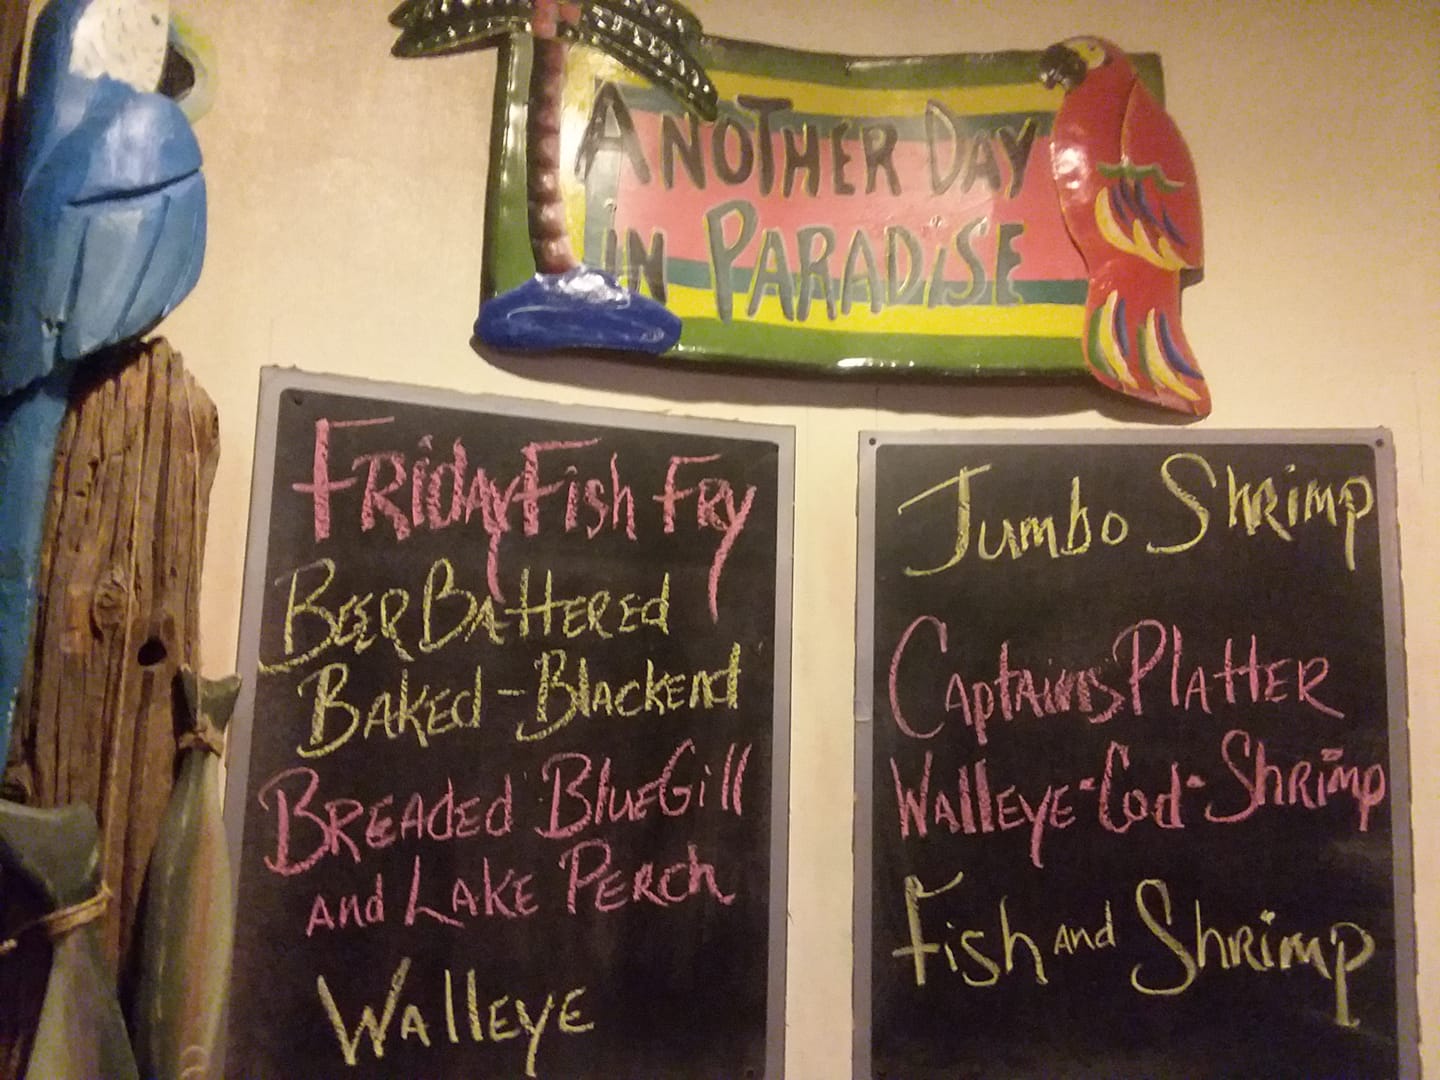 ANOTHER DAY
IN PARADiSE
FRiday Fish FRy
BEER BAttEREd
BAKEd - BlackEnd
BREAdEd BluEGill
and LAKE PERch
WAllEYE
Jumbo ShRimp
CAptains PlAttER
WAllEYE - Cod - ShRimp
Fish and ShRimp